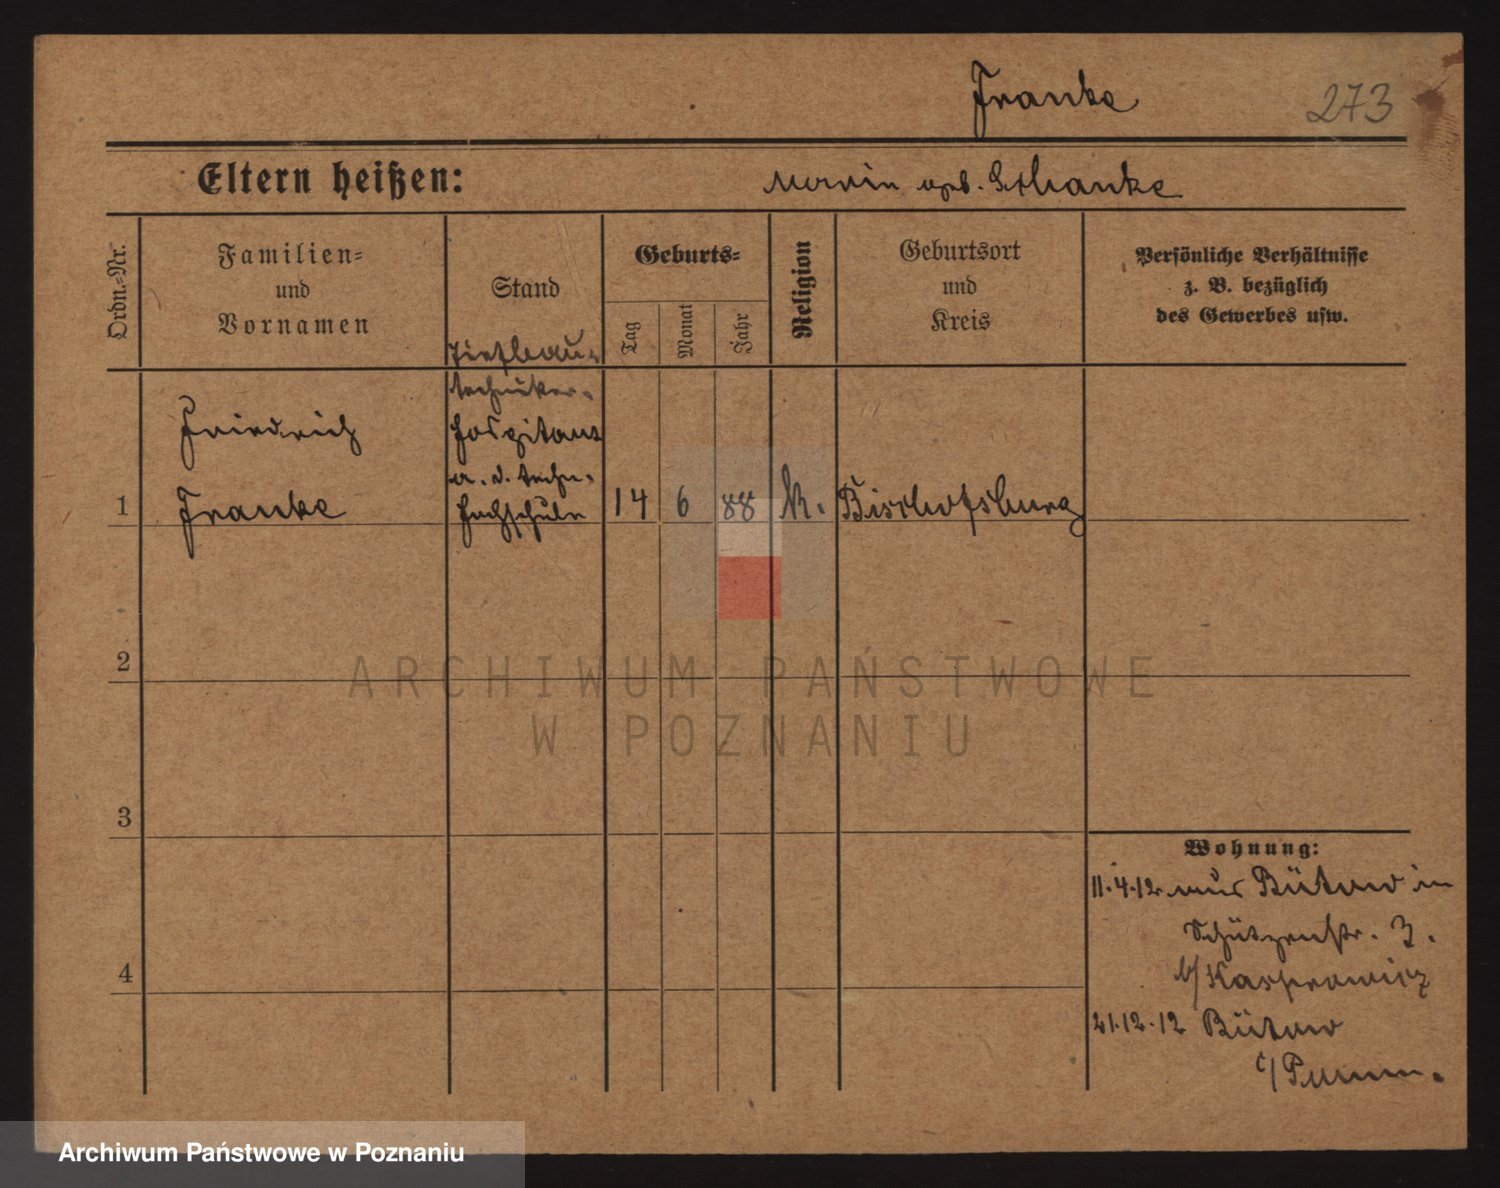 Franke
273
Eltern heißen:
Maria geb. Schanke
Ordn.-Nr.
Familien-
und
Vornamen
Stand
Geburts-
Tag
Monat
Jahr
Religion
Geburtsort
und
Kreis
Persönliche Verhältnisse
z. B. bezüglich
des Gewerbes usw.
Tiefbau-
techniker-
Hospitant
a. d. techn.
Hochschule
1
Friedrich
Franke
14
6
88
k.
Bischofsburg
2
3
4
Wohnung:
11.4.12. aus Bütow in
Schützenstr. 3.
b/ Kasprowicz
21.12.12 Bütow
i/ Pomm.
ARCHIWUM PAŃSTWOWE
W POZNANIU
Archiwum Państwowe w Poznaniu